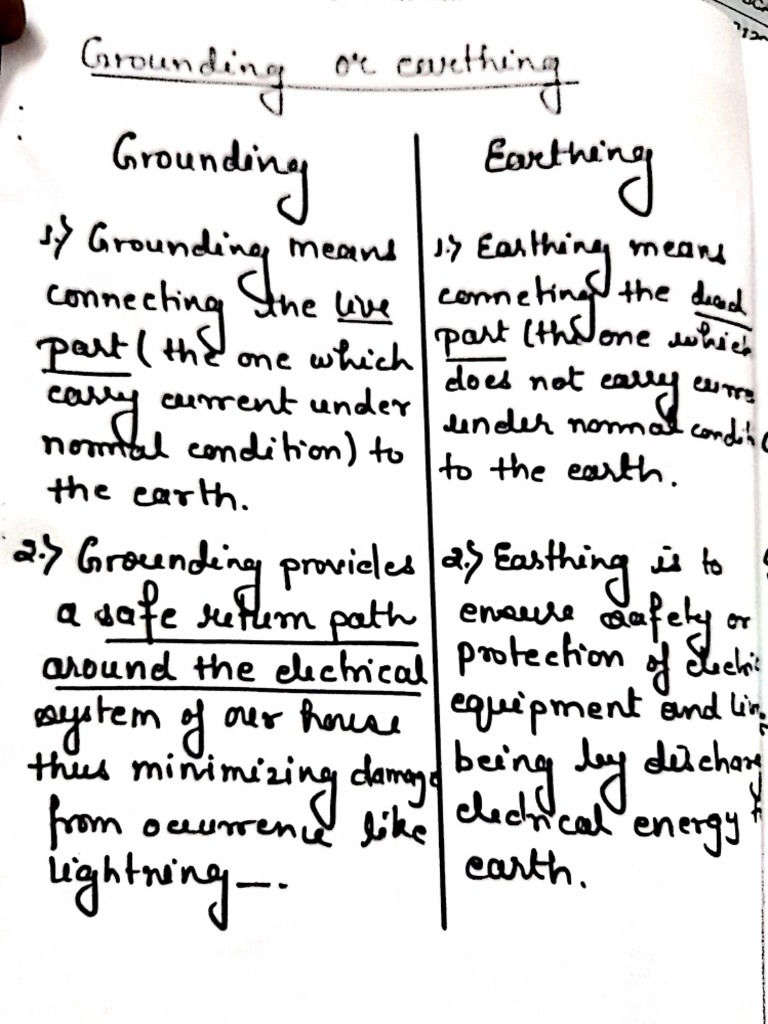 Grounding or earthing
Grounding
1.) Grounding means
connecting the live
part (the one which
carry current under
normal condition) to
the earth.
2.) Grounding provides
a safe return path
around the electrical
system of our house
thus minimizing damage
from ocurrence like
lightning—.
Earthing
1.) Earthing means
conneting the dead
part (the one which
does not carry curre
under normal condit
to the earth.
2.) Earthing is to
ensure safety or
protection of electric
equipment and liv
being by dischar
electrical energy t
earth.